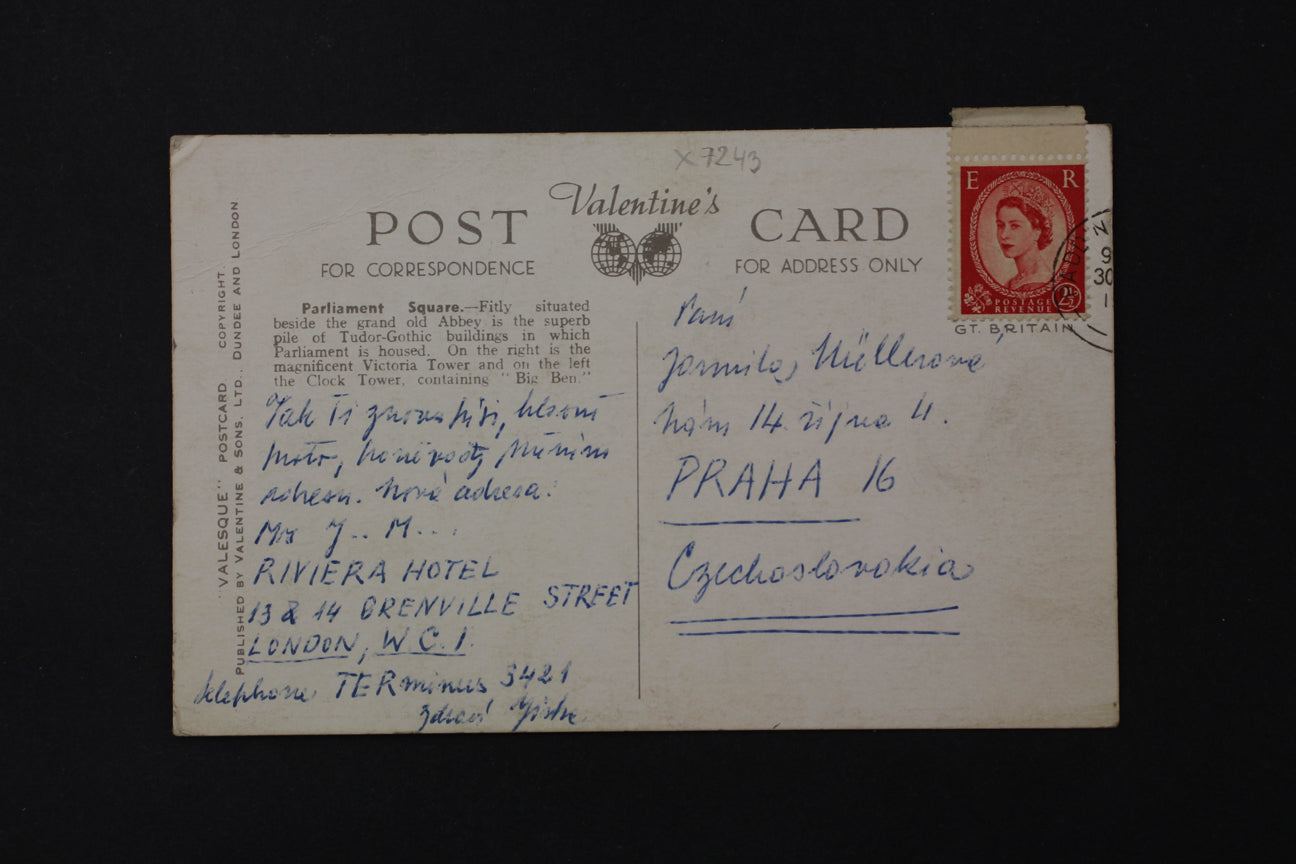 x 7243
Valentine's
POST CARD
FOR CORRESPONDENCE
FOR ADDRESS ONLY
E R
POSTAGE
REVENUE
2½
GT. BRITAIN
9
30
1
"VALESQUE" POSTCARD COPYRIGHT.
PUBLISHED BY VALENTINE & SONS, LTD., DUNDEE AND LONDON
Parliament Square.—Fitly situated
beside the grand old Abbey is the superb
pile of Tudor-Gothic buildings in which
Parliament is housed. On the right is the
magnificent Victoria Tower and on the left
the Clock Tower, containing "Big Ben."
Tak Ti znova píši,
proto,
adresu. Nová adresa:
Mr J.. M...
RIVIERA HOTEL
13 & 14 GRENVILLE STREET
LONDON, W.C.1.
telephone TERminus 3421
Zdraví
Paní
Jarmila Müllerová
Nám 14. října 4.
PRAHA 16
Czechoslovakia